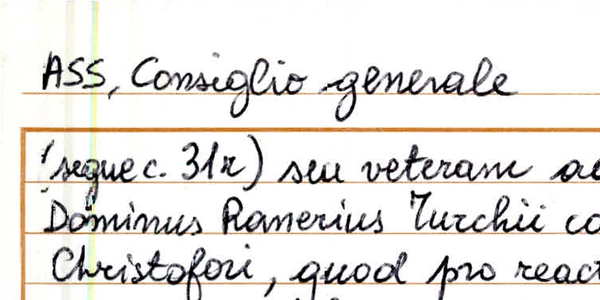 ASS, Consiglio generale
(segue c. 31r) seu veteram
Dominus Ranerius Turchii
Christofori, quod pro